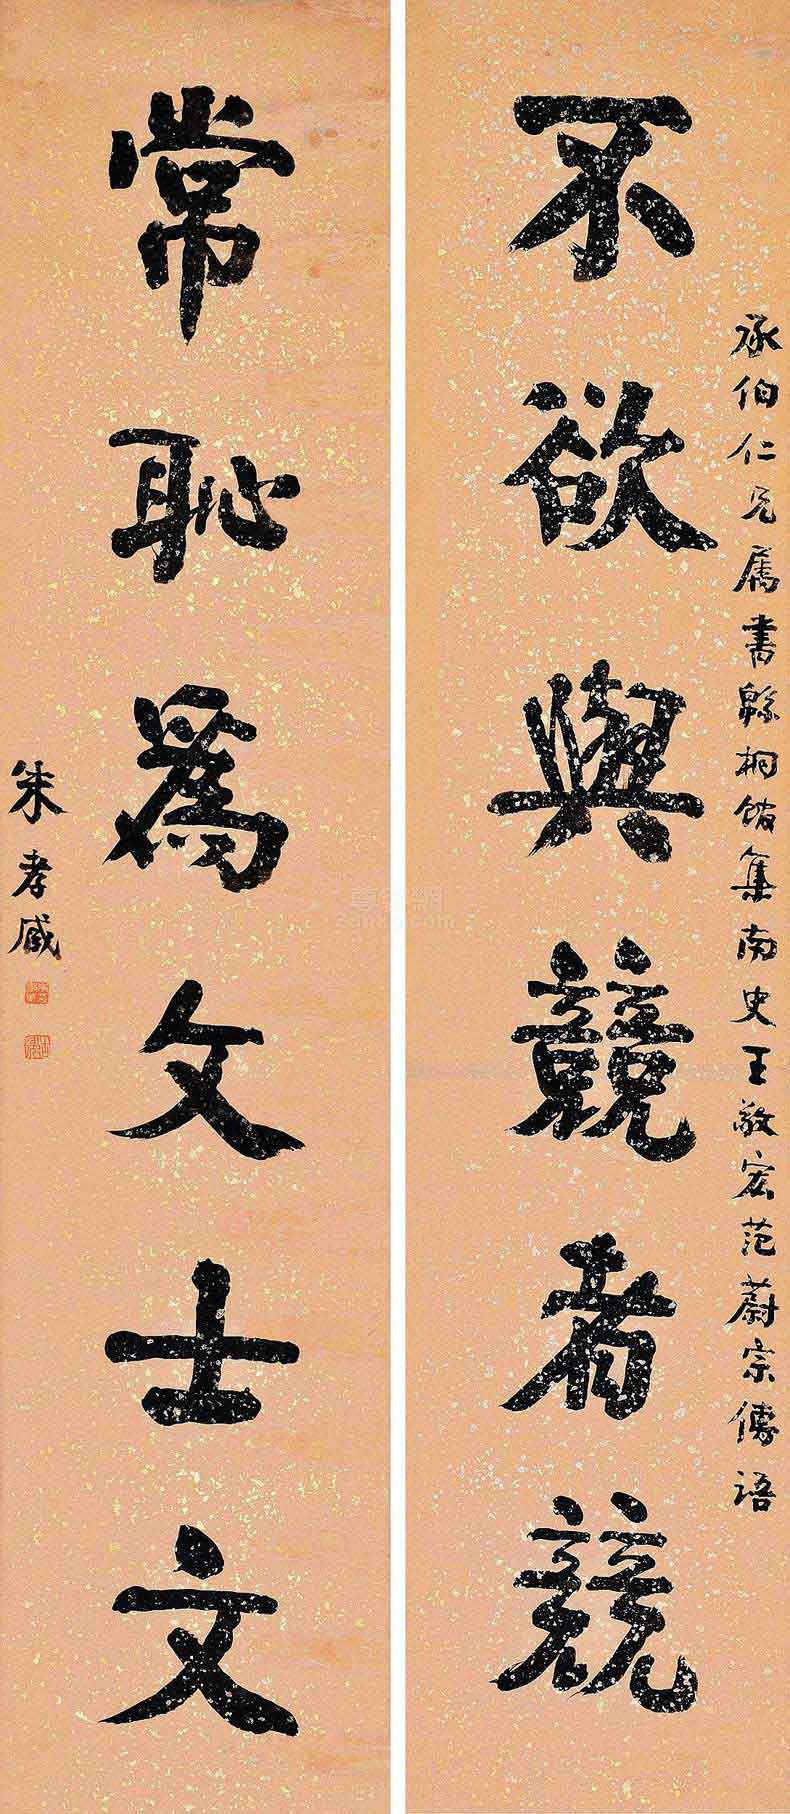 承伯仁兄属书緜桐馆集南史王敬宏范蔚宗傳语
不欲與競者競
常恥爲文士文
朱孝臧